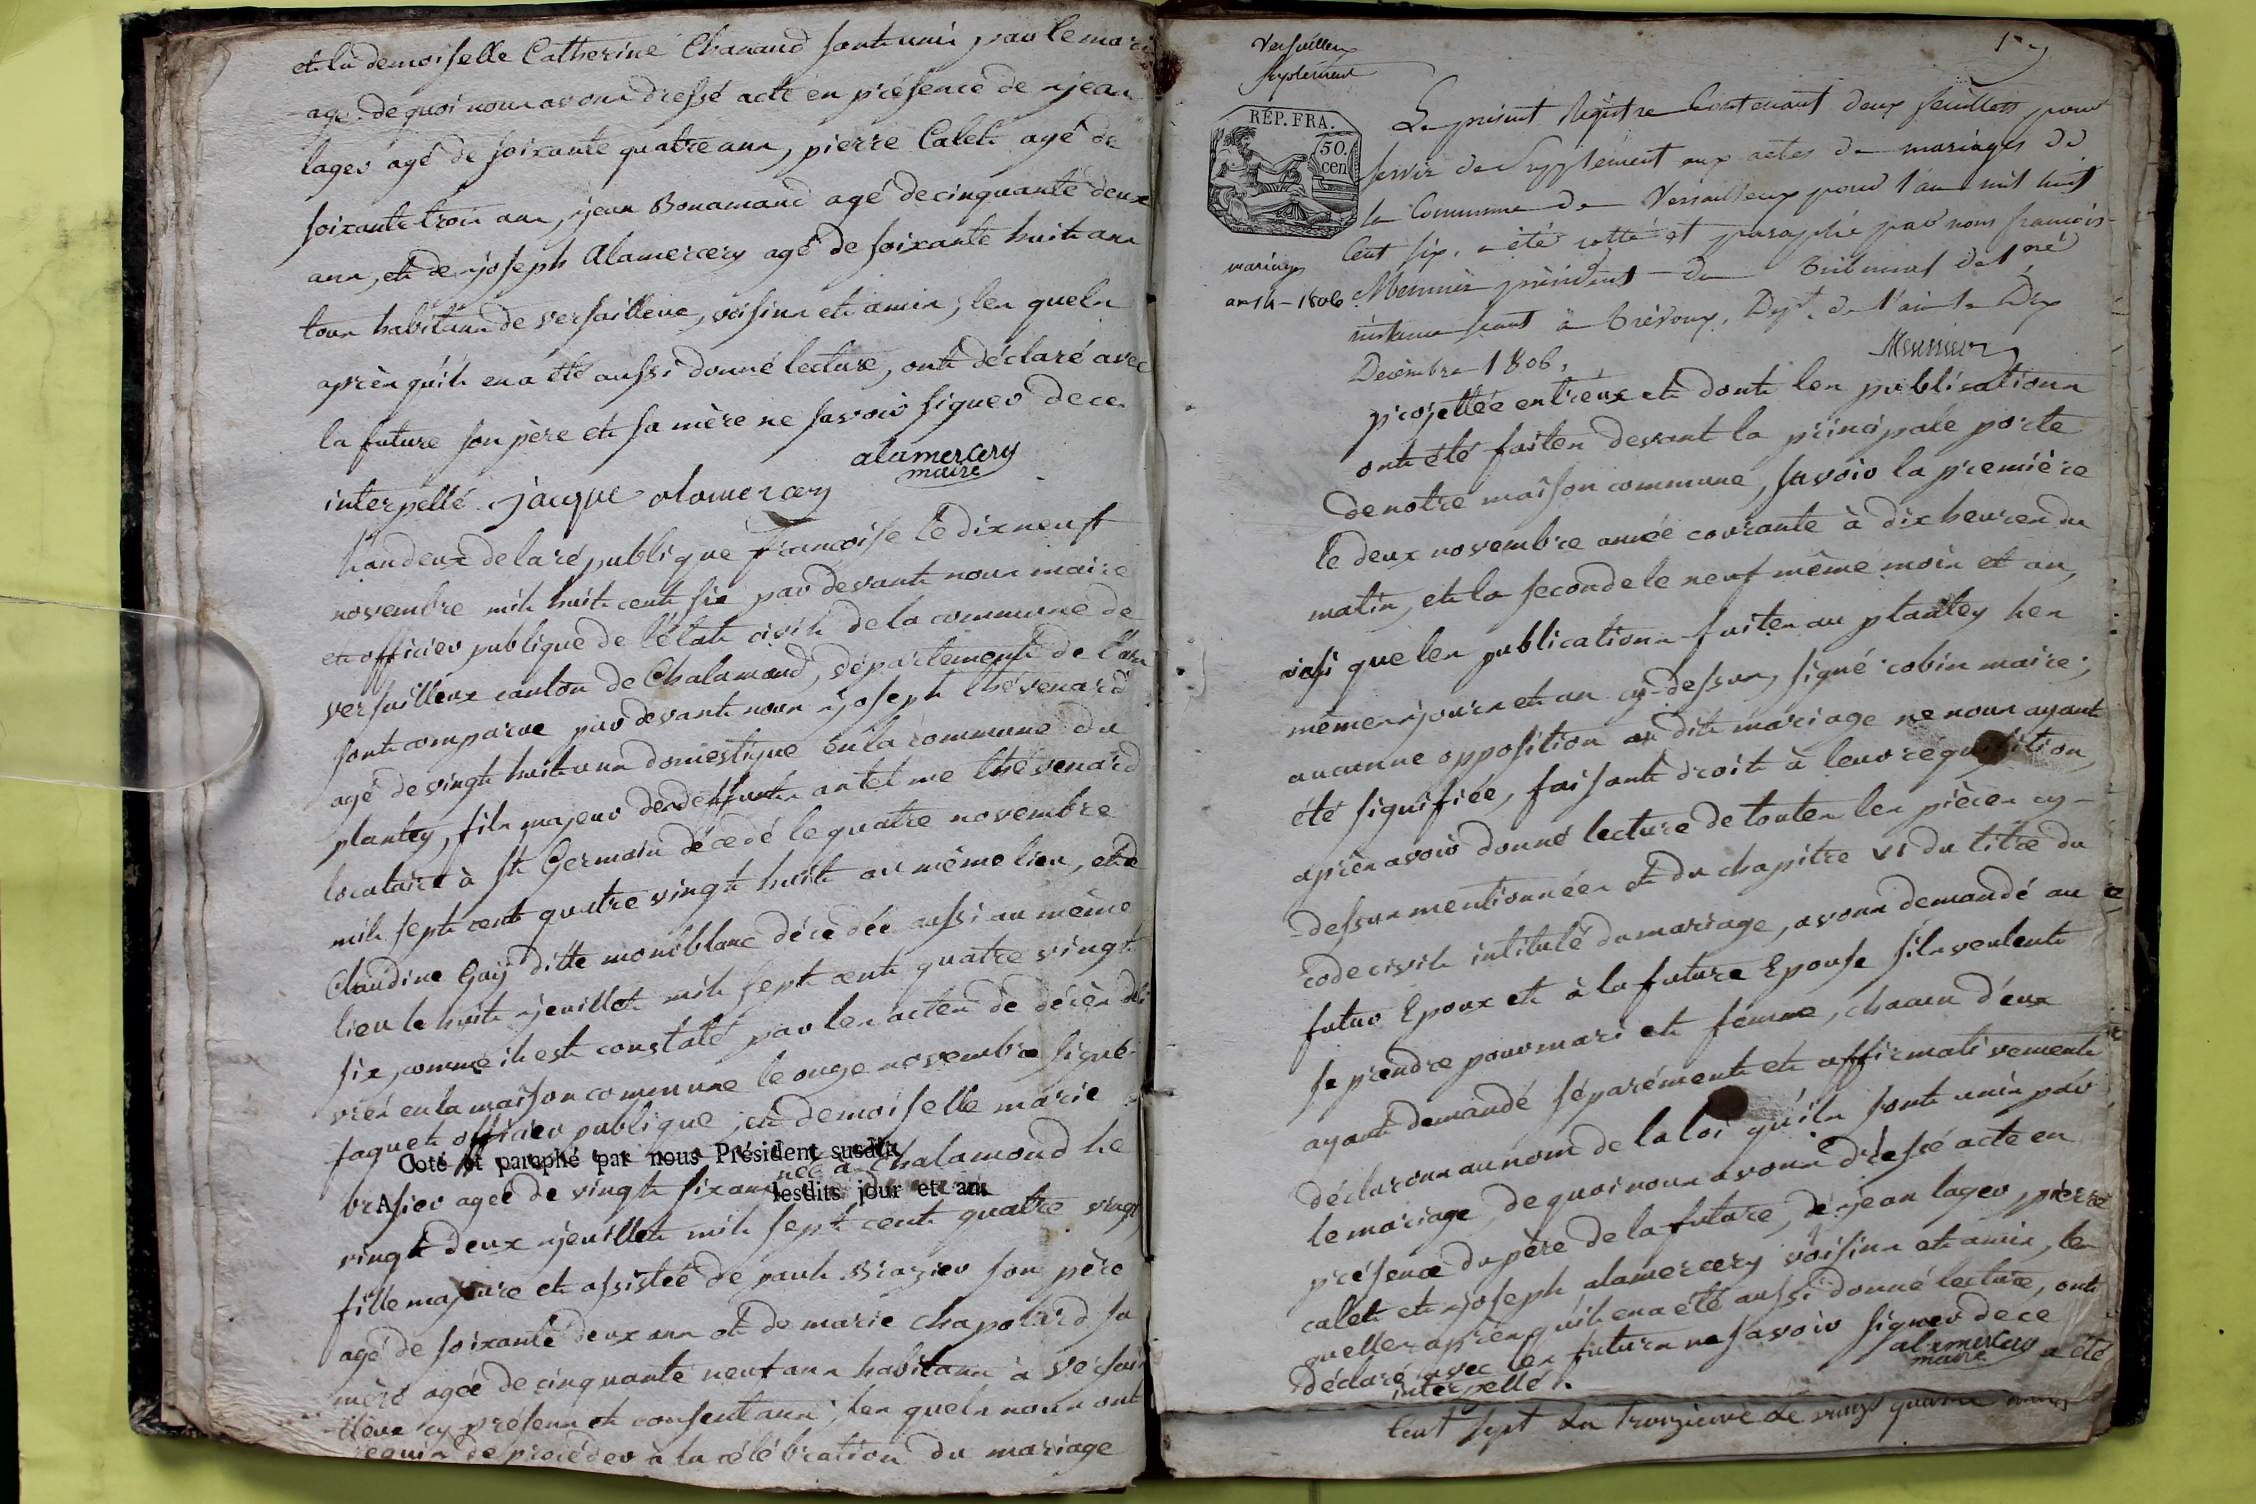 et la demoiselle Catherine Chanaud sont unis par le mari
age. de quoi nous avons dressé acte en présence de jean
lager agé de soixante quatre ans, pierre Calet agé de
soixante trois ans, jean Bonamand agé de cinquante deux
ans, et de joseph alamercery agé de soixante huit ans
tous habitans de versailleux, voisins et amis; les quels
après qu'il en a été aussi donné lecture, ont déclaré avec
la future son père et sa mère ne savoir signer de ce
interpellé. jacque alamercery
alamercery
maire
l'an deux de la république françoise le dix neuf
novembre mil huit cent six par devant nous maire
et officier publique de l'état civil de la commune de
versailleux canton de Chalamond, département de l'ain
sont comparus par devant nous joseph thévenard
agé de vingt huit ans domestique en la commune du
plantey, fils majeur de deffunts antelme thévenard
locataire à St Germain décédé le quatre novembre
mil sept cent quatre vingt huit au même lieu, et de
Claudine Guy ditte montblanc décédée aussi au même
lieu le huit jeuillet mil sept cent quatre vingt
six, comme il est constaté par les actes de décès déli
vrés en la maison commune le onze novembre signé
faquet officier publique; et demoiselle marie
brasier agée de vingt six ans née à Chalamond le
Coté et paraphé par nous Président susdit
A lesdits jour et an
vingt deux jeuillet mil sept cent quatre vingt
fille majeure et assistée de paul Brazier son père
agé de soixante deux ans et de marie chapolard sa
mère agée de cinquante neuf ans habitans à versail
leux cy présens et consentans; les quels nous ont
requis de procéder à la célébration du mariage
Versailleux
Supplément
RÉP. FRA.
50.
cen
mariages
an 14 - 1806
Le présent Régistre Contenant deux feuillets pour
servir de Supplément aux actes de mariages de
la Commune de Versailleux pour l'an mil huit
Cent six, a été cotté et paraphé par nous françois
Meunier président du Tribunal de 1ere
instance séant à Trévoux, Dept. de l'ain le Dix
Décembre 1806.
Meunier
projettée entreux et dont les publications
ont été faites devant la principale porte
de notre maison commune, savoir la première
le deux novembre année courante à dix heures du
matin, et la seconde le neuf même mois et an,
ainsi que les publications faites au plantey les
mêmes jours et an cy-dessus, signé cobin maire;
aucunne opposition au dit mariage ne nous ayant
été signifiée, faisant droit à leur réquisition,
après avoir donné lecture de toutes les pièces cy-
-dessus mentionnées et du chapitre VI du titre du
code civil intitulé du mariage, avons demandé au
futur Epoux et à la future Epouse s'ils veulent
se prendre pour mari et femme, chacun d'eux
ayant demandé séparément et affirmativement
déclarons au nom de la loi qu'ils sont unis par
le mariage, de quoi nous avons dressé acte en
présence du père de la future, de jean lager, pierre
calet et joseph alamercery voisins et amis, les
quelles après qu'il en a été aussi donné lecture, ont
déclaré avec les futurs ne savoir signer de ce
interpellé.
alamercery
maire
a été
Cent sept